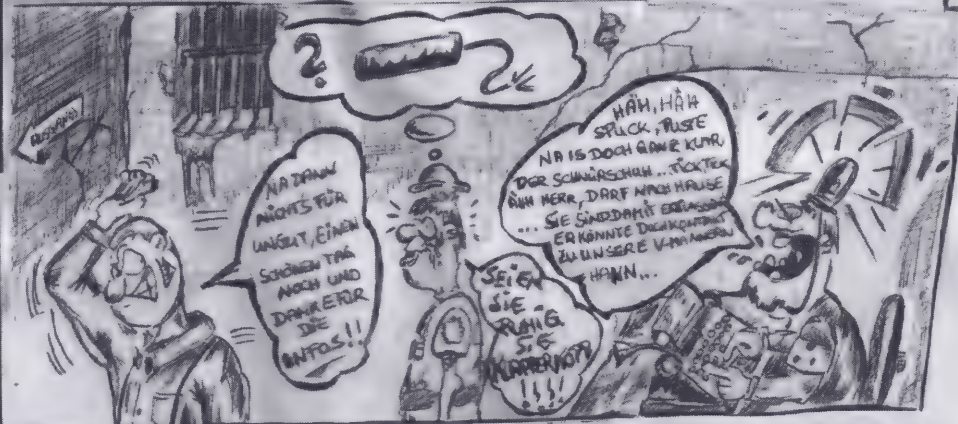 AUSGANG
?
NA DANN
NICHTS FÜR
UNGUT, EINEN
SCHÖNEN TAG
NOCH UND
DANKE FÜR
DIE
INFOS!!
SEIEN
SIE
RUHIG
SIE
KLAPPERKOPP
!!!!
HÄH, HÄH
SPUCK, PUSTE
NA IS DOCH GANZ KLAR,
DER SCHNÜRSCHUH... TICKTER
ÄUH HERR, DARF NACH HAUSE
... SIE SIND DAMIT
ER KÖNNTE DOCH KONTAKT
ZU UNSERE V-MÄNNERN
HANN...